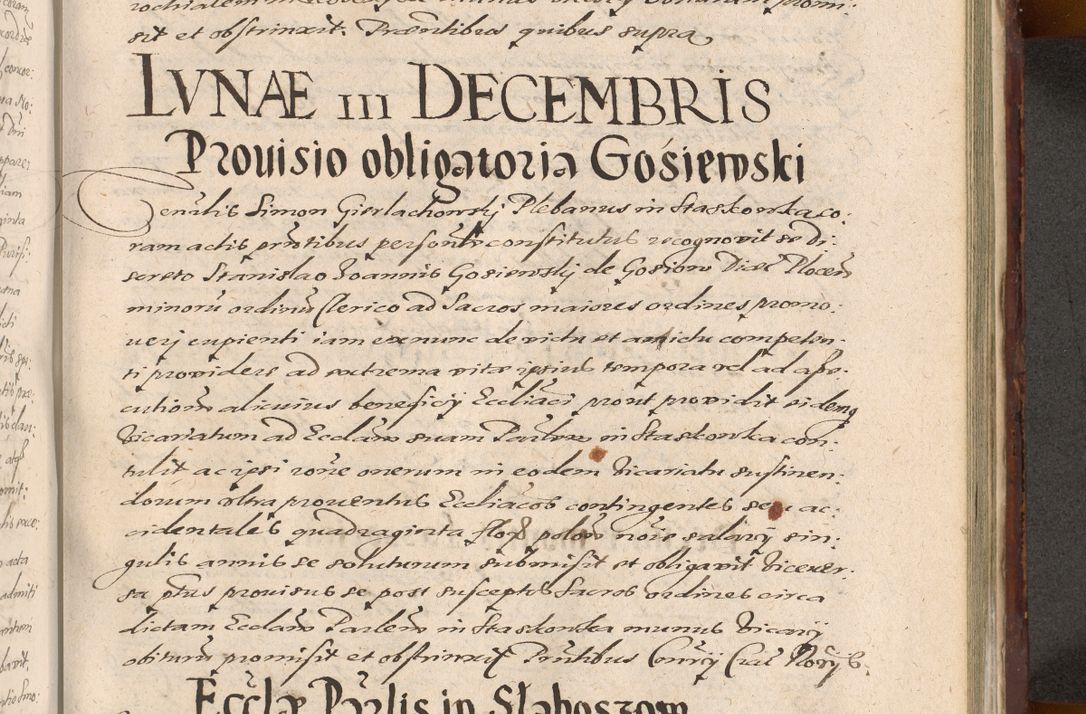 sit et obstrinxit. Præntibus quibus supra
LVNAE III DECEMBRIS
Prouisio obligatoria Gosiewski
Venrlis Simon Gierlachowskj Plebanus in Staskowka co:
ram actis prntibus personlr constitutus recognovit se Di:
screto Stanislao Joannis Gosiewskj de Gosiow Diæc Plocen
minorũ ordinũ Clerico ad Sacros maiores ordines promo:
uerj cupienti iam ex nunc de victu et amictu competen:
ti providere ad extrema vitæ ipsius tempora vel ad asse:
cutionem alicuius beneficij Eccliaci prout providit eidemq
Vicariatum ad Ecclam suam Parlem in Staskowka con:
tulit ac ipsi rone onerum in eodem Vicariatu sustinen:
dorum vltra prouentus Eccliacos contingentes seu ac:
cidentales quadraginta flor polon noie salarij sin:
gulis annis se soluturum submisit et obligavit Vicever:
sa ptus prouisus se post susceptos Sacros ordines circa
dictam Ecclam Parlem in Staskowka munus Vicarij
obiturũ promisit et obstrinxit Prntibus
Ecclæ Parlis in Slaboszow